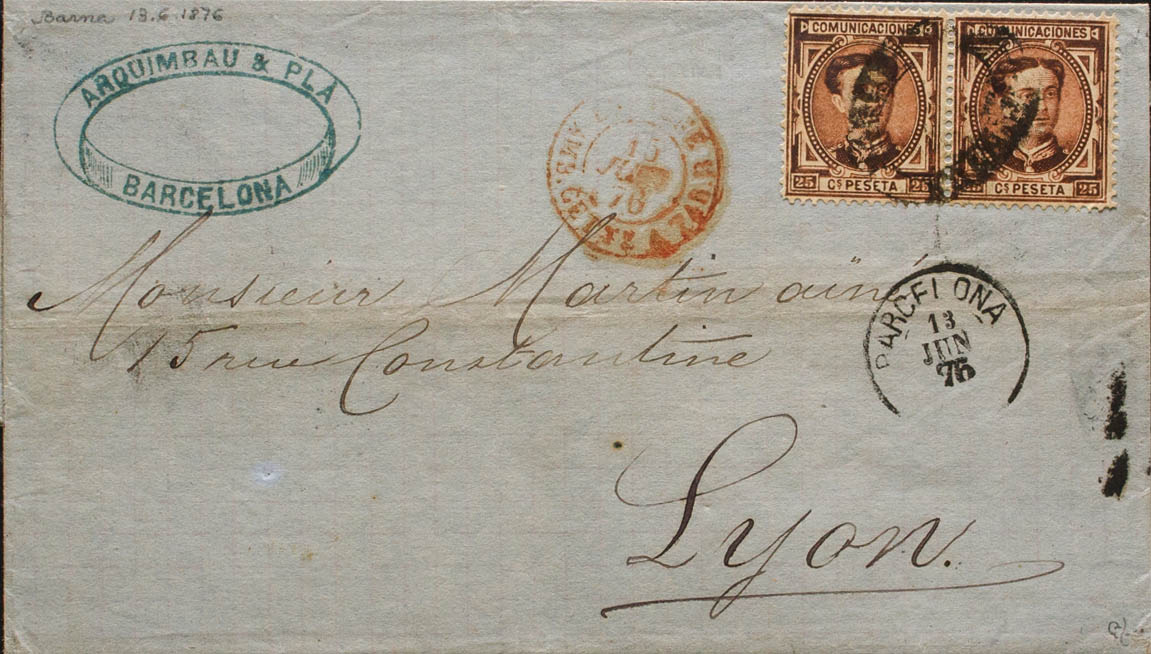 Barna 13.6 1876
ARQUIMBAU & PLÁ
BARCELONA
COMUNICACIONES
25 Cs PESETA 25
COMUNICACIONES
Cs PESETA 25
15
76
BARCELONA
13
JUN
76
Monsieur Martin aîné
15 rue Constantine
Lyon.